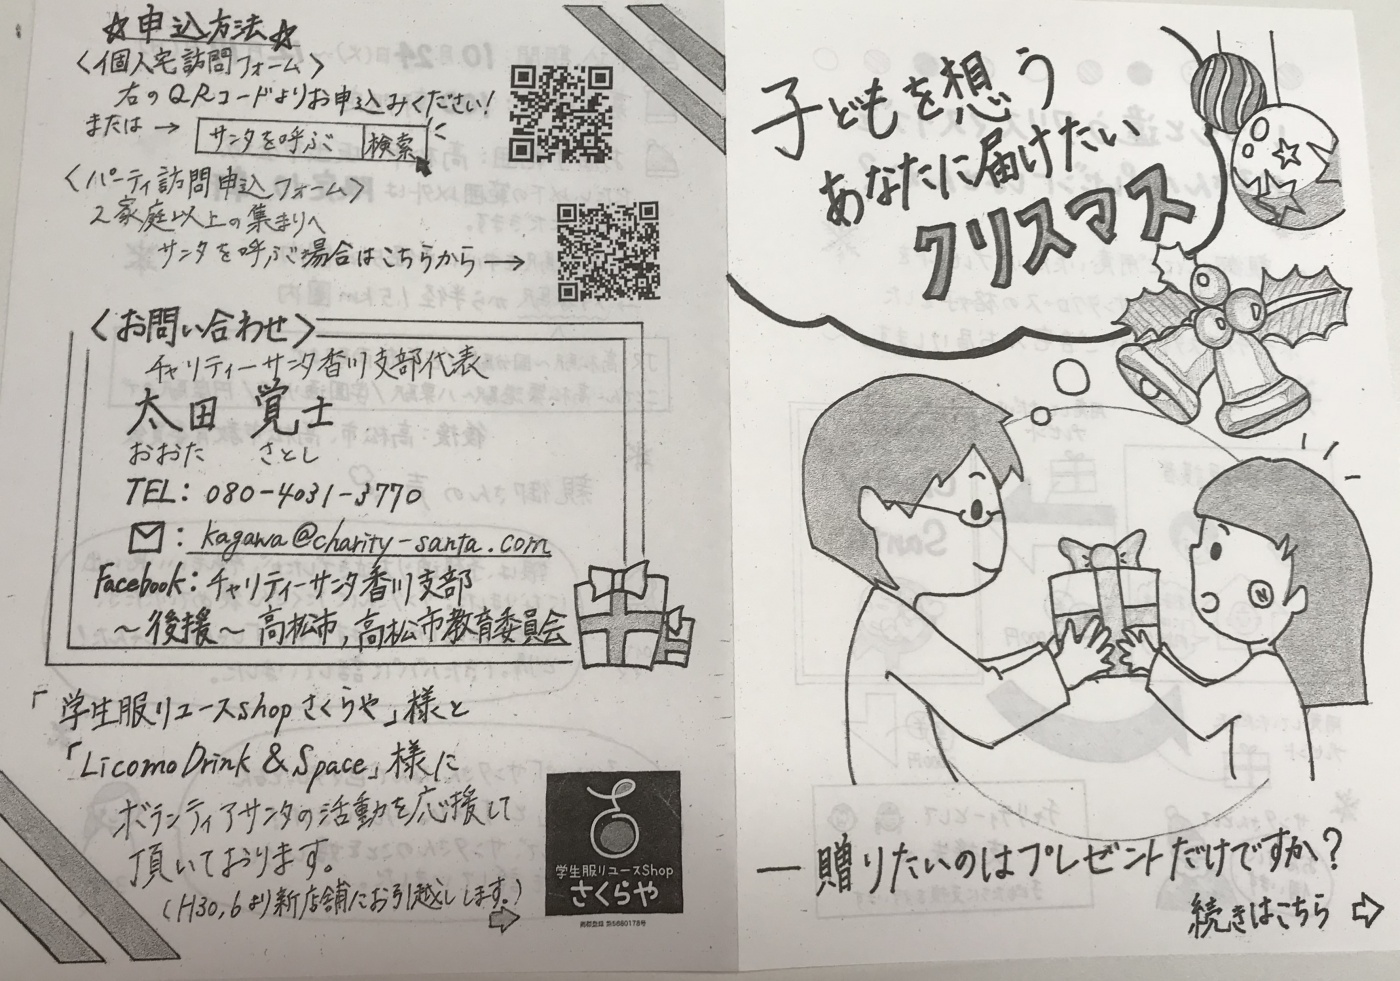 ☆申込方法☆
〈個人宅訪問フォーム〉
右のQRコードよりお申込みください!
または → サンタを呼ぶ 検索
〈パーティ訪問申込フォーム〉
2家庭以上の集まりへ
サンタを呼ぶ場合はこちらから →
〈お問い合わせ〉
チャリティーサンタ香川支部代表
太田 覚士
おおた さとし
TEL: 080-4031-3770
: kagawa@charity-santa.com
Facebook: チャリティーサンタ香川支部
〜後援〜 高松市, 高松市教育委員会
「学生服リユースshopさくらや」様と
「Licomo Drink & Space」様に
ボランティアサンタの活動を応援して
頂いております。
(H30,6より新店舗にお引越しします。)
学生服リユースShop
さくらや
商標登録 第5680178号
子どもを想う
あなたに届けたい
クリスマス
― 贈りたいのはプレゼントだけですか?
続きはこちら ⇨